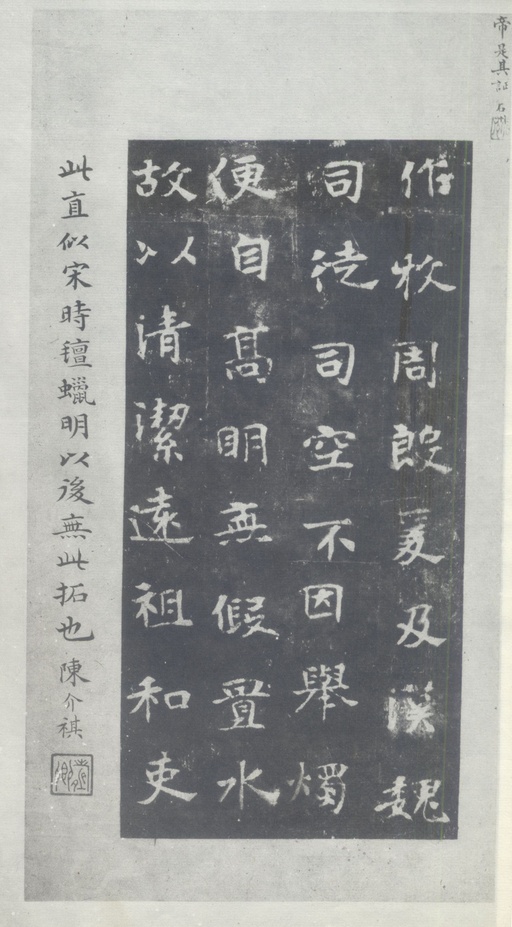 帝是其証
作牧周殷爰及漢魏
司徒司空不因舉燭
便自髙明無假置水
故以清潔遠祖和吏
此直似宋時氊蠟明以後無此拓也 陳介祺